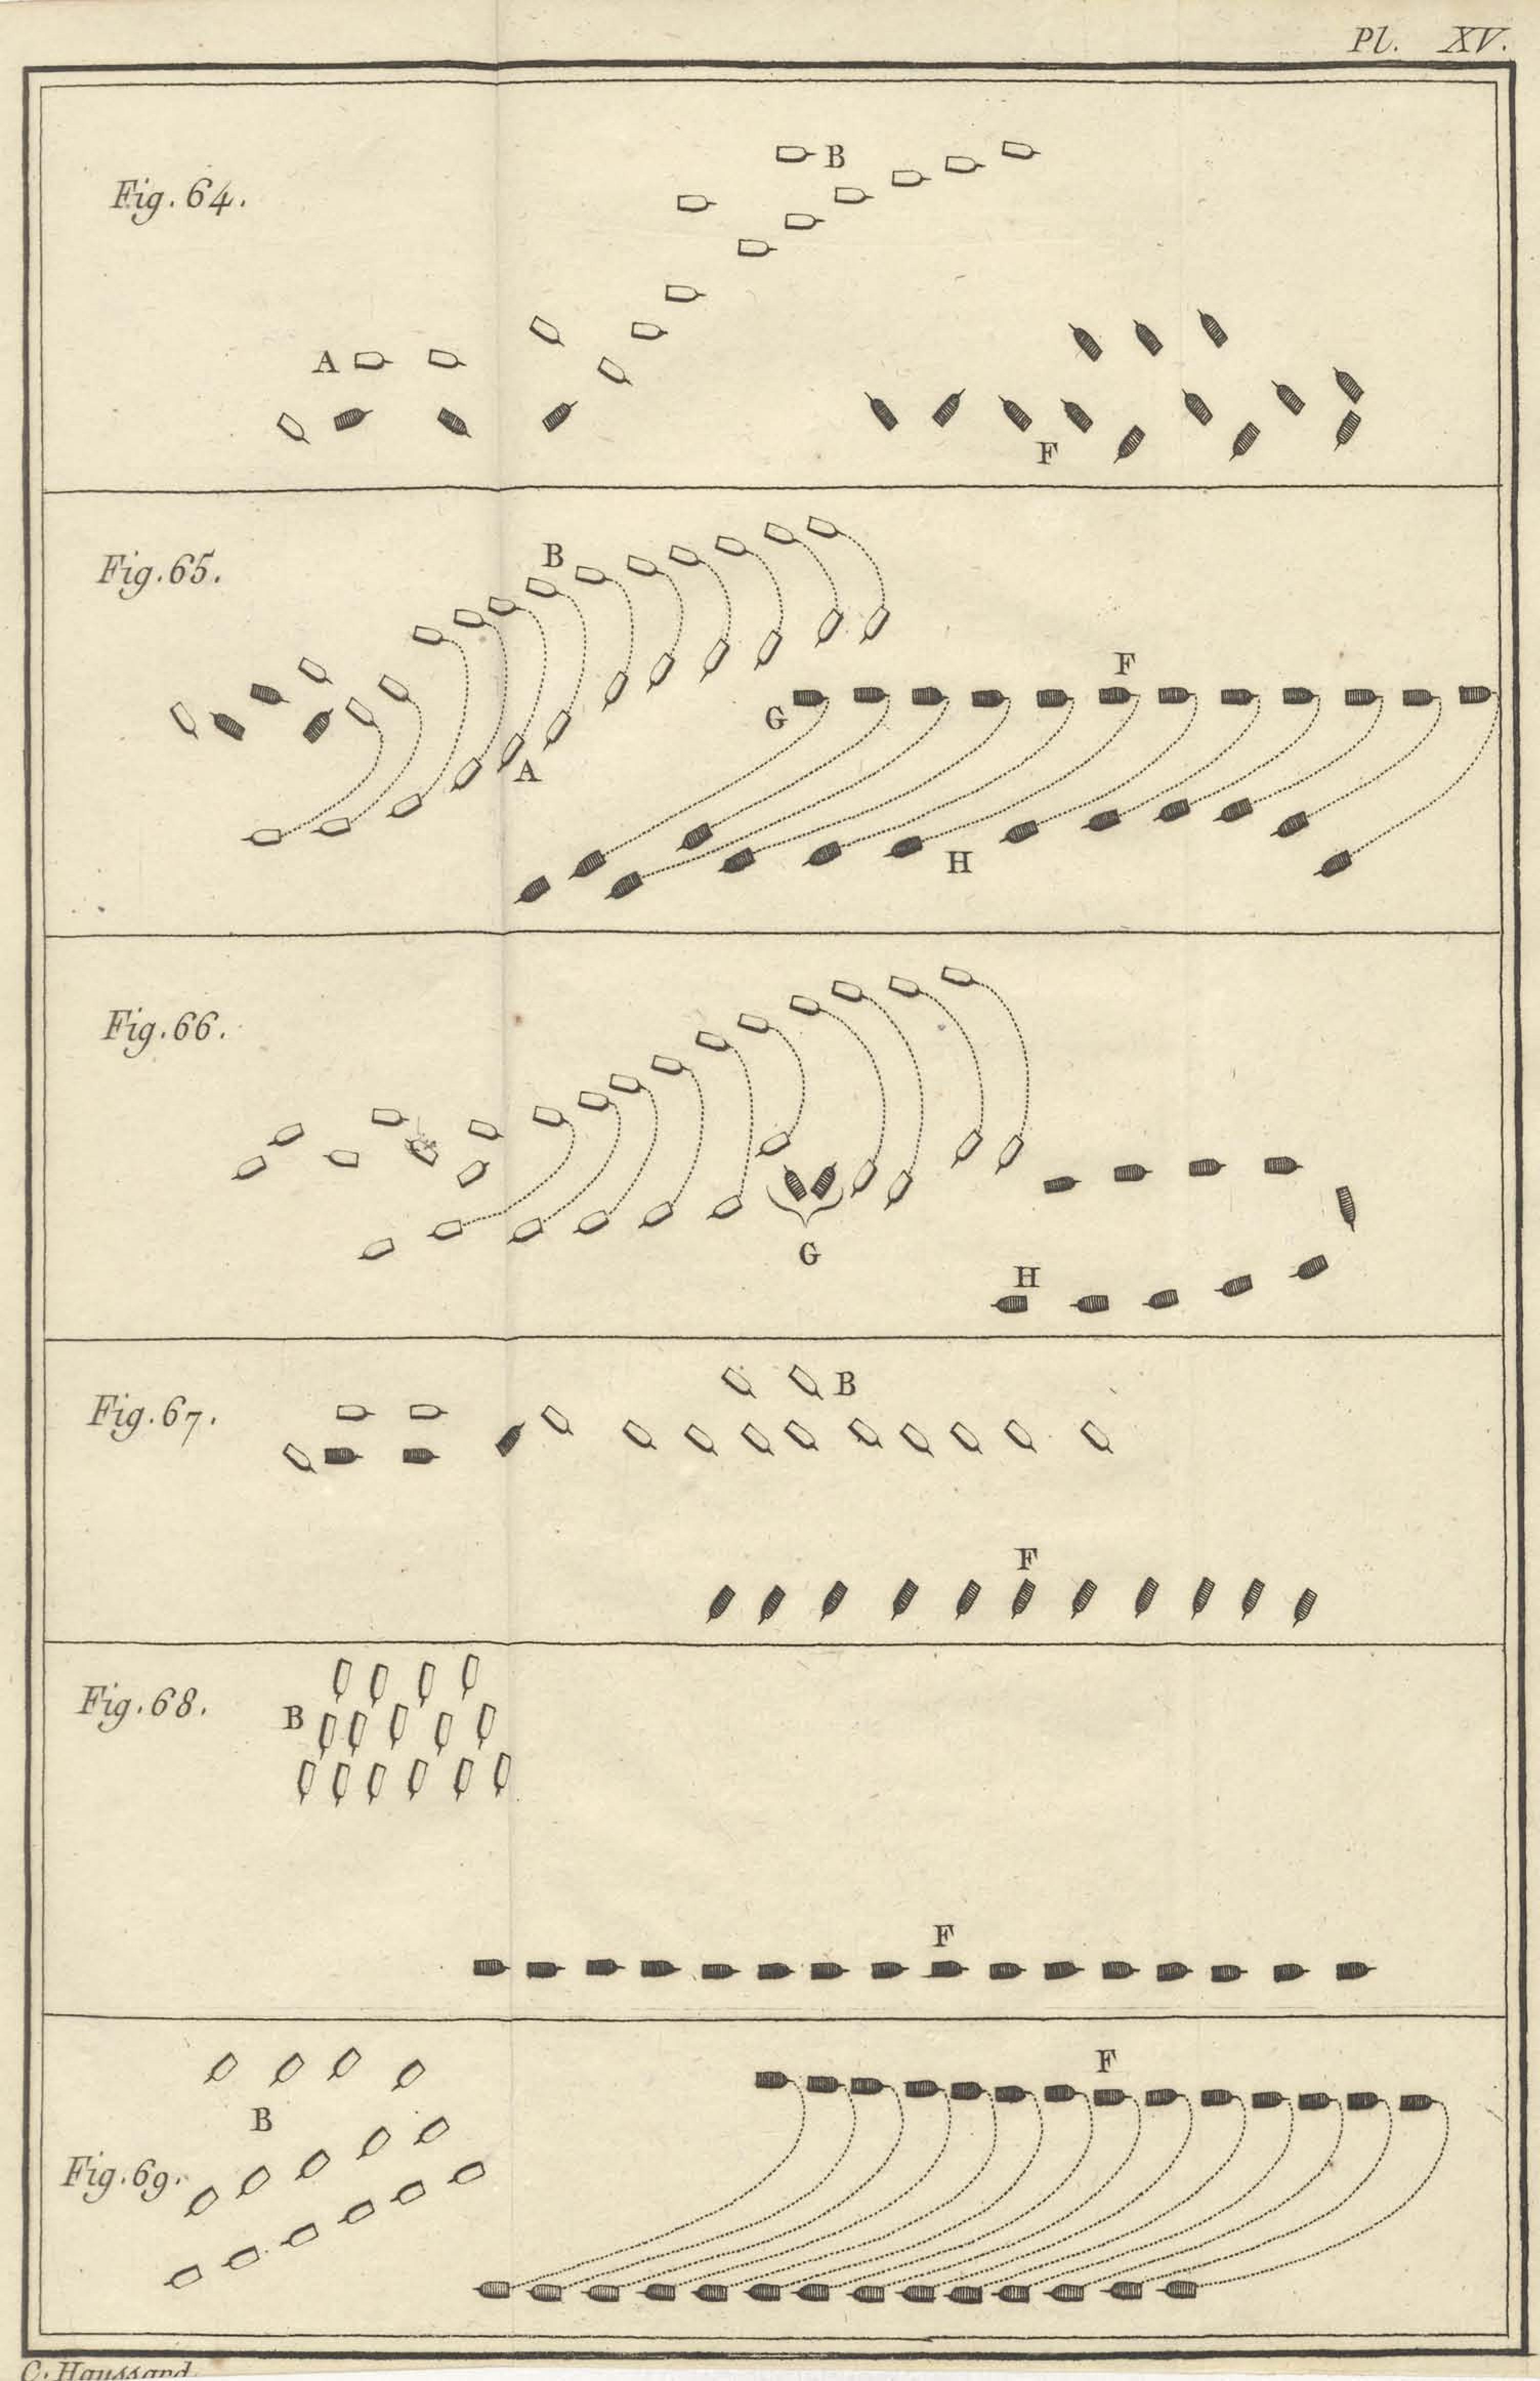 Pl. XV.
B
Fig. 64.
A
F
B
Fig. 65.
F
G
A
H
Fig. 66.
G
H
B
Fig. 67.
F
Fig. 68.
B
F
F
B
Fig. 69.
C. Haussard